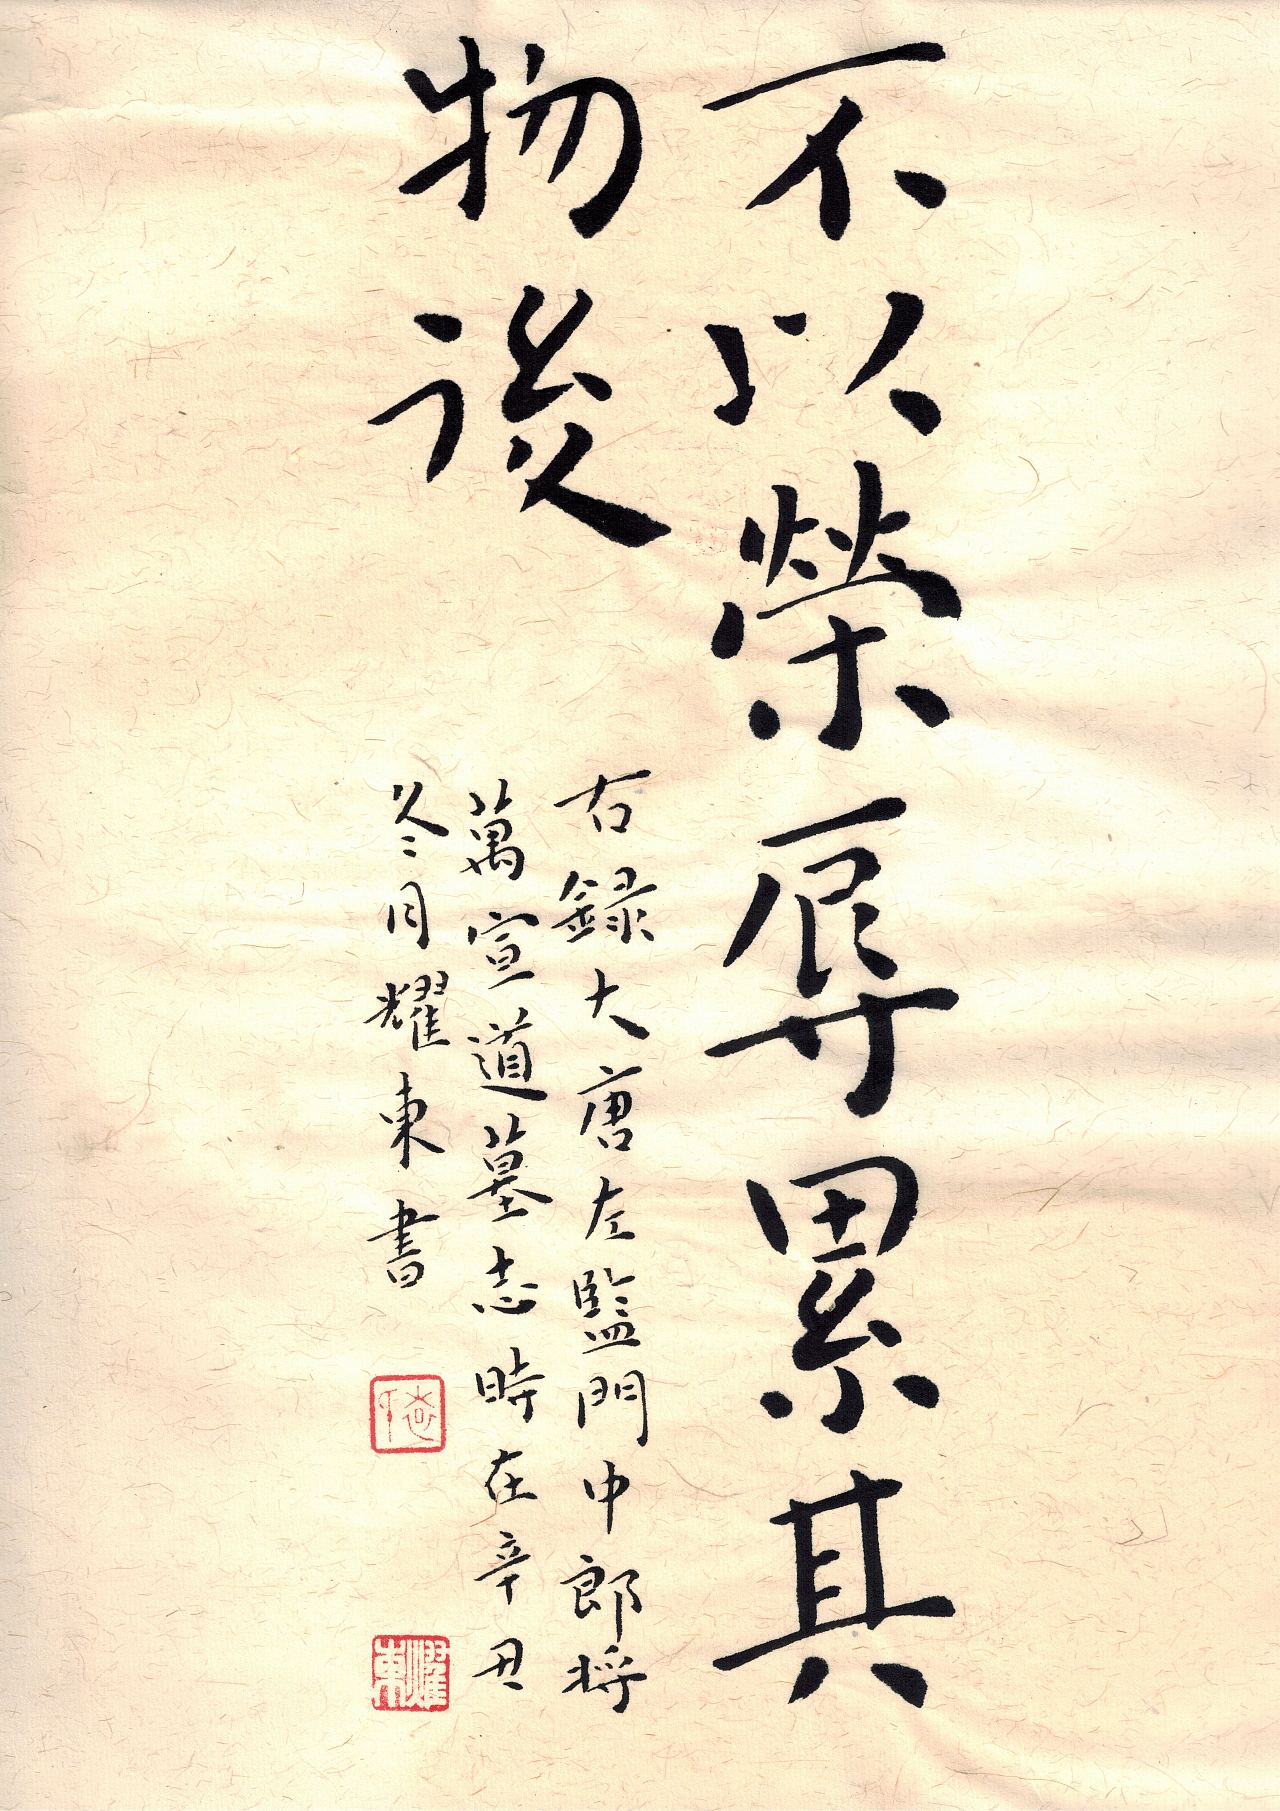 不以榮辱累其
物後
右録大唐左監門中郎将
萬宣道墓志時在辛丑
冬月耀東書
耀東